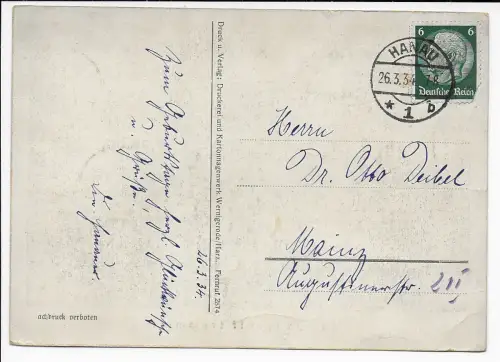 zum Geburtstage herzl. Glückwunsch
u. Grüße.
26.3.34.
achdruck verboten
Druck u. Verlag: Druckerei und Kartonnagenwerk Wernigerode/Harz. Fernruf 2674
HANAU
26.3.34
* 1 b
6 6
Deutsches Reich
Herrn
Dr. Otto Deibel
Mainz
Augustinerstr.